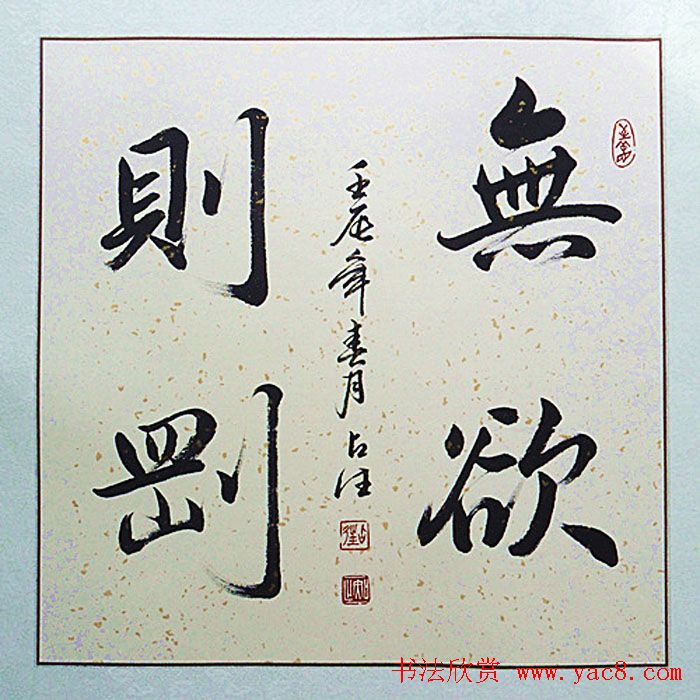 無欲
則剛
壬辰年春月
书法欣赏 www.yac8.com